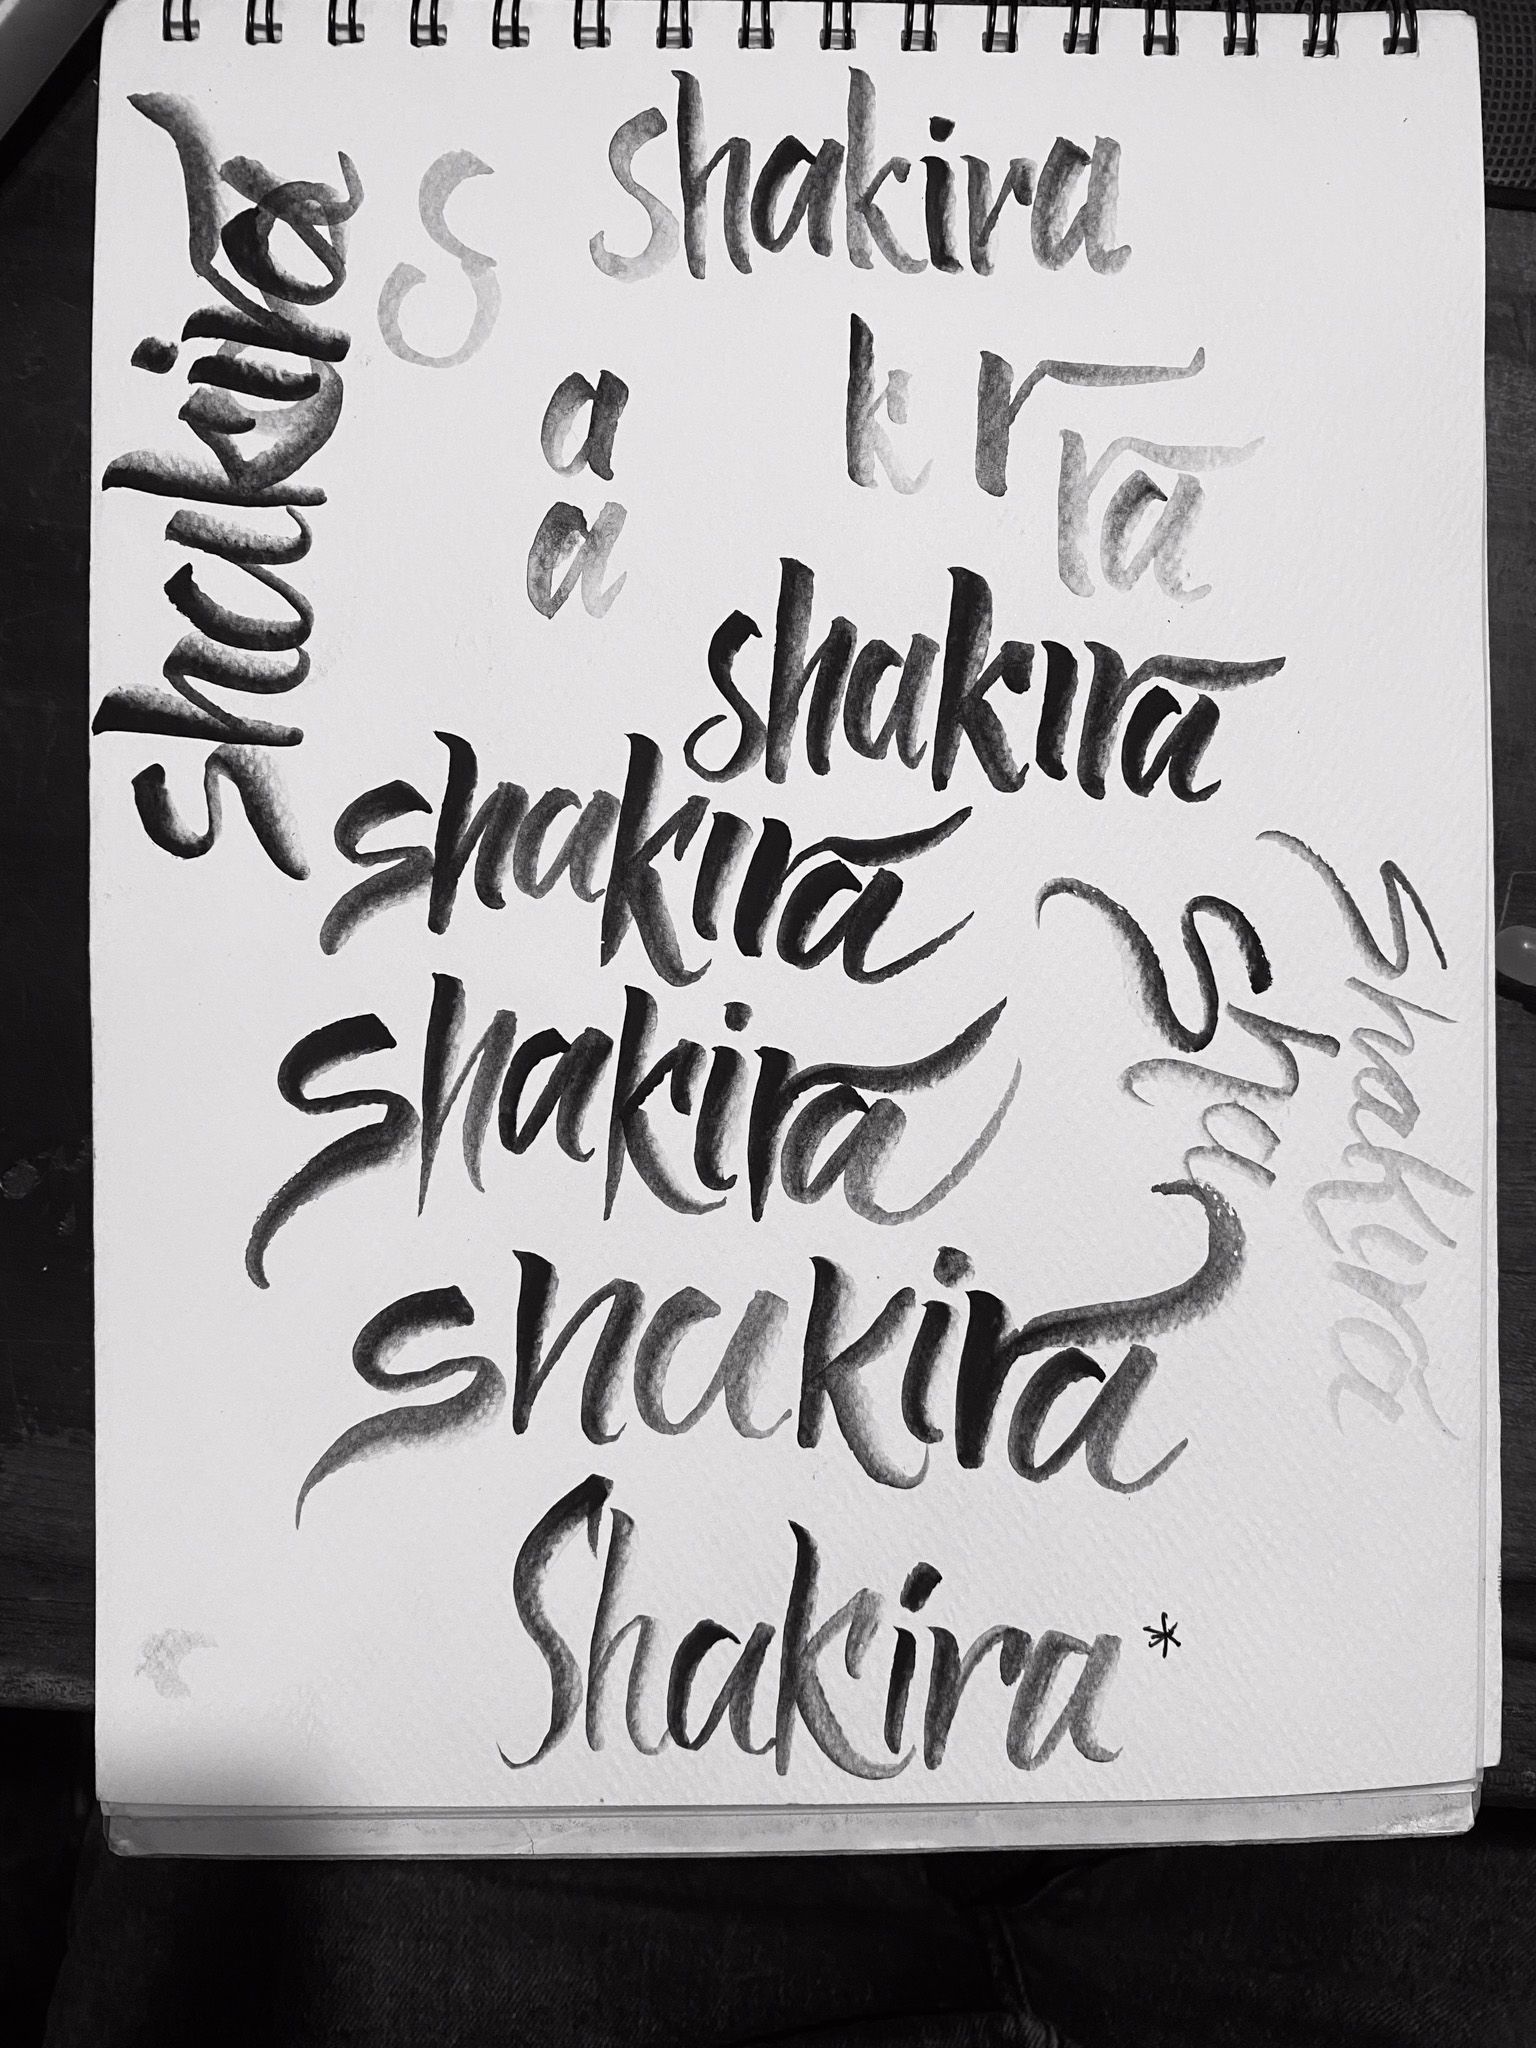 shakira
shakira
S
a
k r
ra
a
shakira
shakira
shakira
sha
shakira
shakira
Shakira*